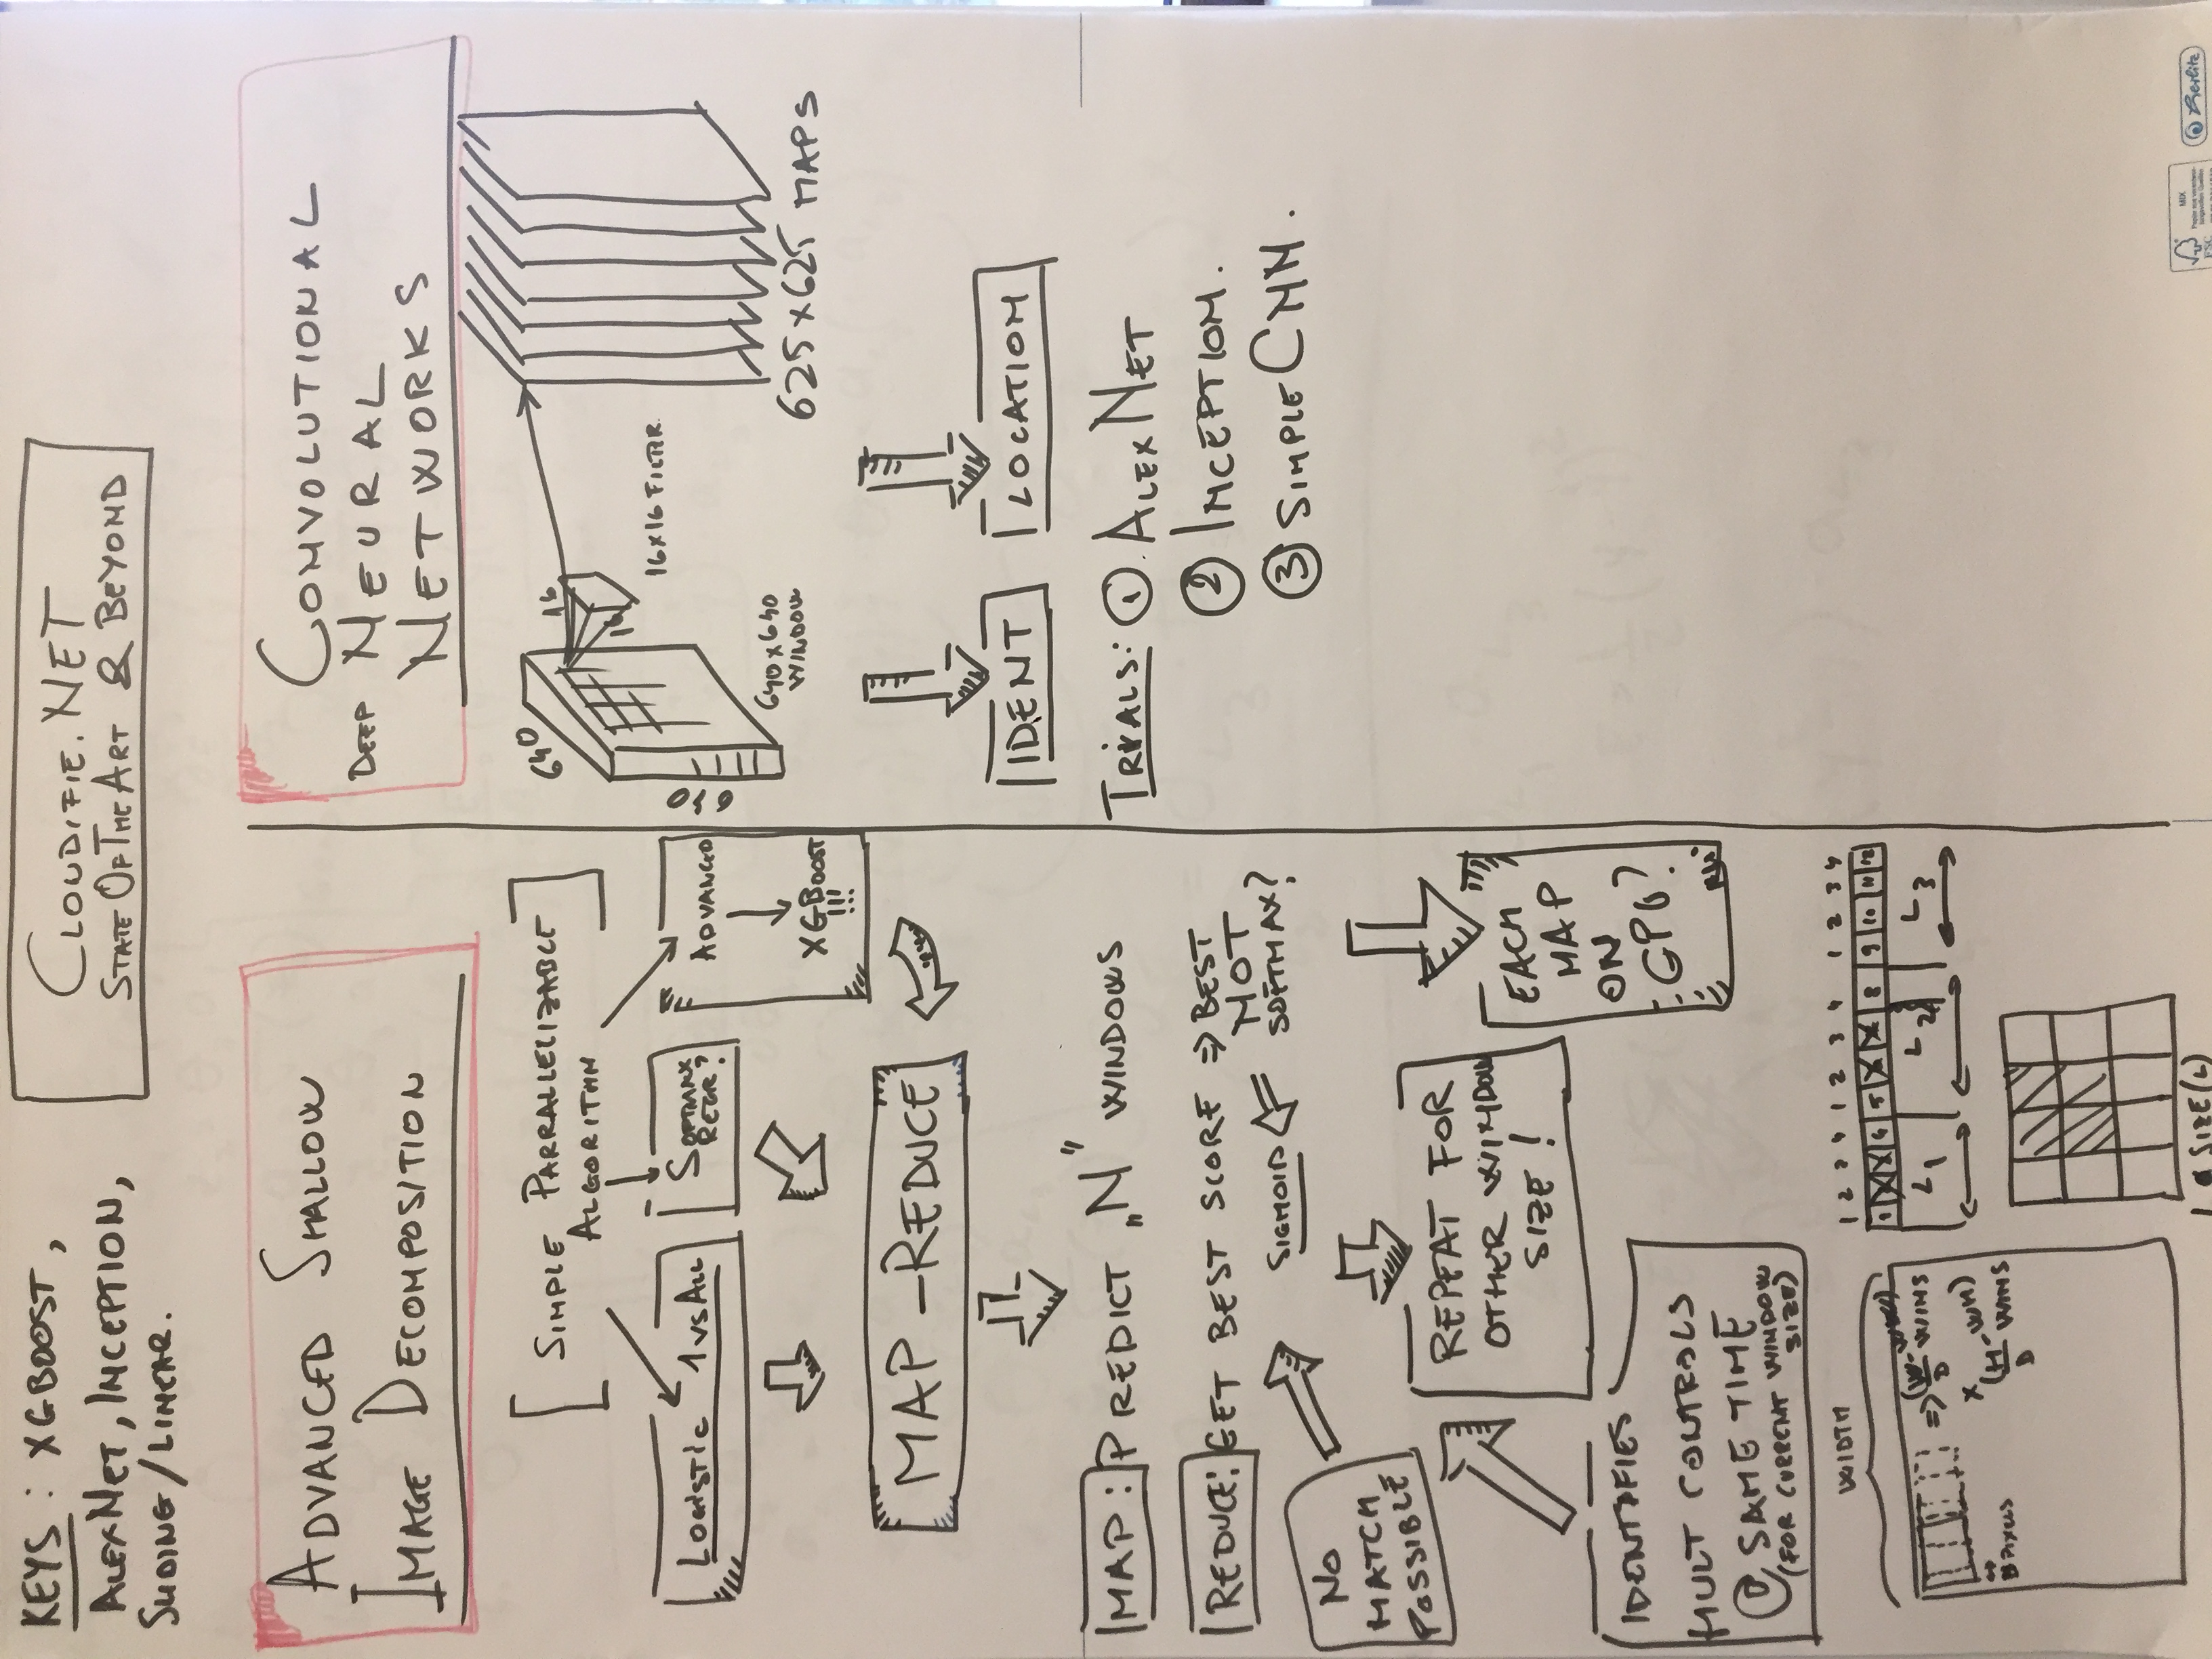 KEYS : XGBOOST,
ALEXNET, INCEPTION,
SLIDING/LINEAR.
CLOUDIFIE.NET
STATEOFTHEART & BEYOND
ADVANCED SHALLOW
IMAGE DECOMPOSITION
SIMPLE PARRALLELIZABLE
ALGORITHM
LOGISTIC 1VSALL
SOFTMAX
REGR?
ADVANCED
XGBOOST
!!!
MAP-REDUCE
MAP: PREDICT „N" WINDOWS
REDUCE: GET BEST SCORE => BEST
NOT
SOFTMAX?
SIGMOID
NO
MATCH
POSSIBLE
REPEAT FOR
OTHER WINDOW
SIZE!
EACH
MAP
ON
GPU?
IDENTIFIES
MULT CONTROLS
@ SAME TIME
(FOR CURRENT WINDOW
SIZE)
WIDTH
=> (W-WW) WINS
D
x (H-WH) WINS
D
PIXELS
1 2 3 4 1 2 3 4 1 2 3 4
1 4 5 8 9 10 11 12
L1 L2 L3
SIZE(L)
CONVOLUTIONAL
DEEP NEURAL
NETWORKS
640
640
16
16
16X16 FILTER.
640x640
WINDOW
625x625 MAPS
IDENT
LOCATION
TRIALS: 1. ALEXNET
2 INCEPTION.
3 SIMPLE CNN.
FSC
MIX
Berlitz